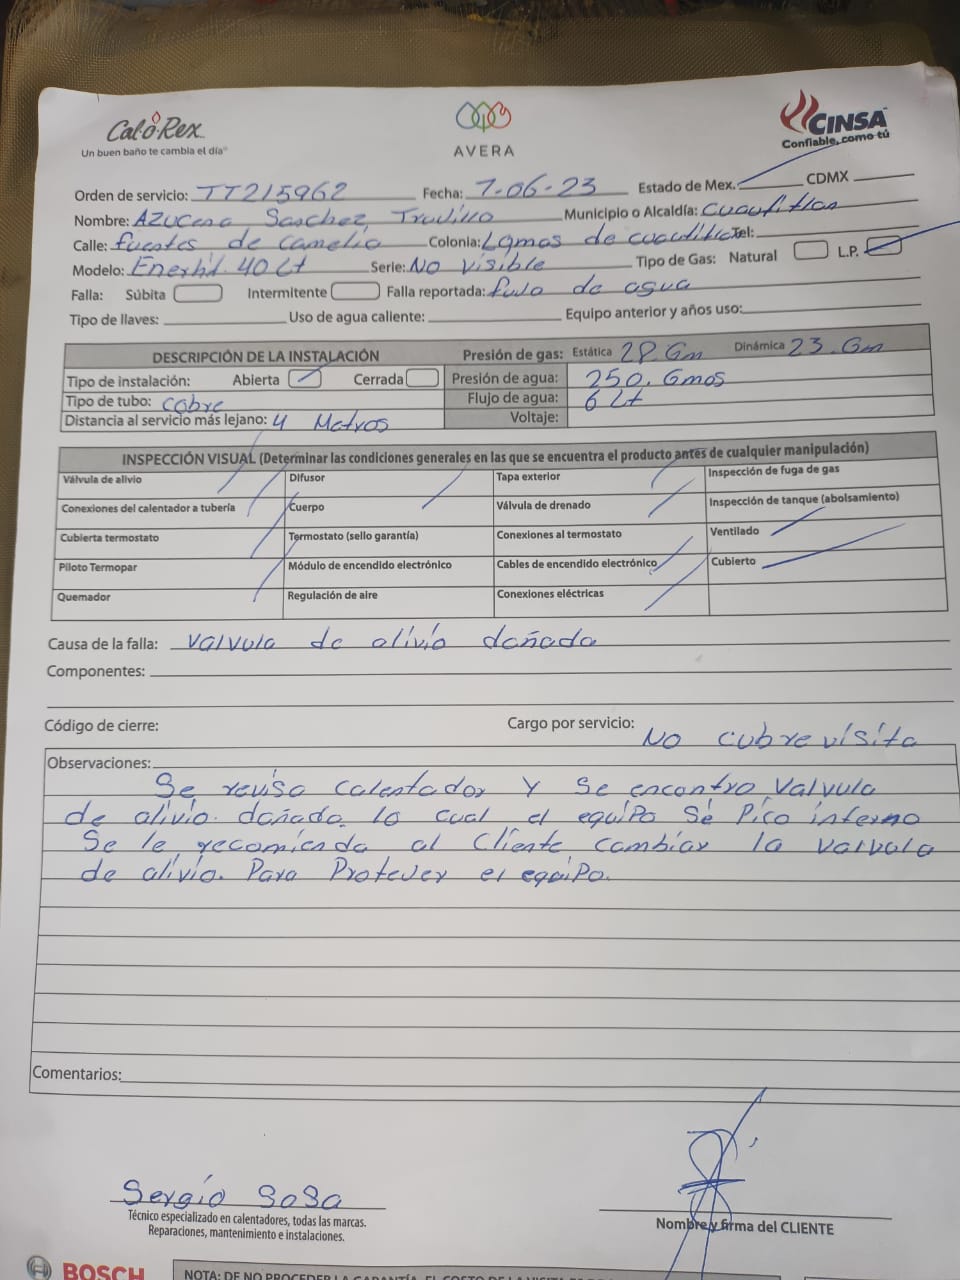 Cal-o-Rex
Un buen baño te cambia el día
AVERA
CINSA
Confiable, como tú
Orden de servicio: TT215962 Fecha: 7-06-23 Estado de Mex. CDMX
Nombre: AZUCena Sanchez Trujillo Municipio o Alcaldía: Cuautitlan
Calle: fuentes de Camelia Colonia: Lomas de cuautitlan Tel:
Modelo: Enerhit. 40 Lt Serie: No visible Tipo de Gas: Natural L.P.
Falla: Súbita Intermitente Falla reportada: de agua
Tipo de llaves: Uso de agua caliente: Equipo anterior y años uso:
DESCRIPCIÓN DE LA INSTALACIÓN Presión de gas: Estática 28. Gm Dinámica 23. Gm
Tipo de instalación: Abierta Cerrada Presión de agua: 250. Gmos
Tipo de tubo: Cobre Flujo de agua: 6 Lt
Distancia al servicio más lejano: 4 Metros Voltaje:
INSPECCIÓN VISUAL (Determinar las condiciones generales en las que se encuentra el producto antes de cualquier manipulación)
Válvula de alivio Difusor Tapa exterior Inspección de fuga de gas
Conexiones del calentador a tubería Cuerpo Válvula de drenado Inspección de tanque (abolsamiento)
Cubierta termostato Termostato (sello garantía) Conexiones al termostato Ventilado
Piloto Termopar Módulo de encendido electrónico Cables de encendido electrónico Cubierto
Quemador Regulación de aire Conexiones eléctricas
Causa de la falla: Valvula de alivio dañada
Componentes:
Código de cierre: Cargo por servicio: No cubre visita
Observaciones:
Se reviso Calentador Y Se encontro Valvula
de alivio. dañada. lo cual el equipo Se Pico interno
Se le recomienda al Cliente cambiar la valvula
de alivio. Para Protejer el equipo.
Comentarios:
Sergio Sosa
Técnico especializado en calentadores, todas las marcas.
Reparaciones, mantenimiento e instalaciones.
Nombre y firma del CLIENTE
BOSCH
NOTA: DE NO PROCEDER LA GARANTÍA, EL COSTO DE LA VISITA